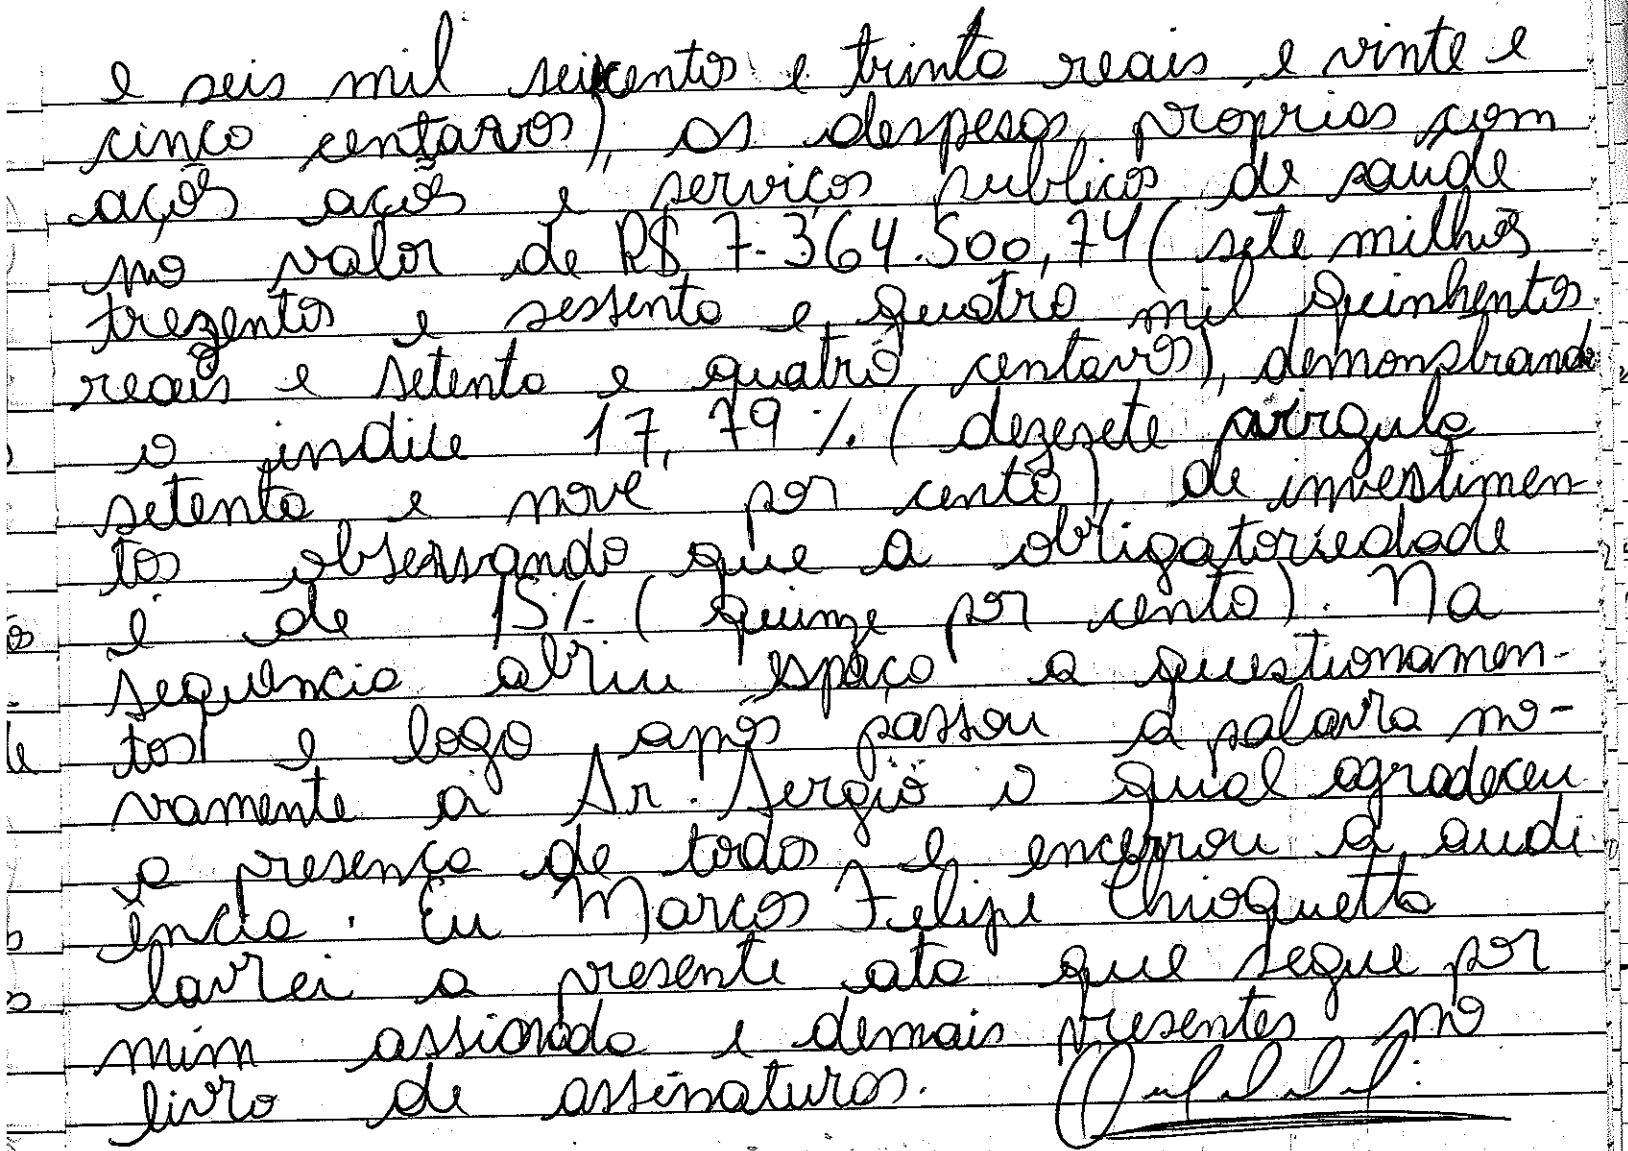 e seis mil seiscentos e trinta reais e vinte e
cinco centavos), as despesas próprias com
ações ações e serviços publicos de saúde
no valor de R$ 7.364.500,74 (sete milhões
trezentos e sessenta e quatro mil quinhentos
reais e setenta e quatro centavos), demonstrando
o indice 17,79% (dezesete virgula
setenta e nove por cento) de investimen-
tos observando que a obrigatoriedade
é de 15% (quinze por cento). Na
sequência abriu espaço a questionamen-
tos e logo após passou a palavra no-
vamente a Sr. Sergio o qual agradeceu
a presença de todos e encerrou a audi
ência. Eu Marcos Felipe Chioquetta
lavrei a presente ata que segue por
mim assinada e demais presentes no
livro de assinaturas.